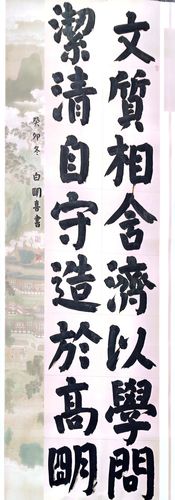 文質相含濟以學問
潔清自守造於高明
癸卯冬 白明喜書